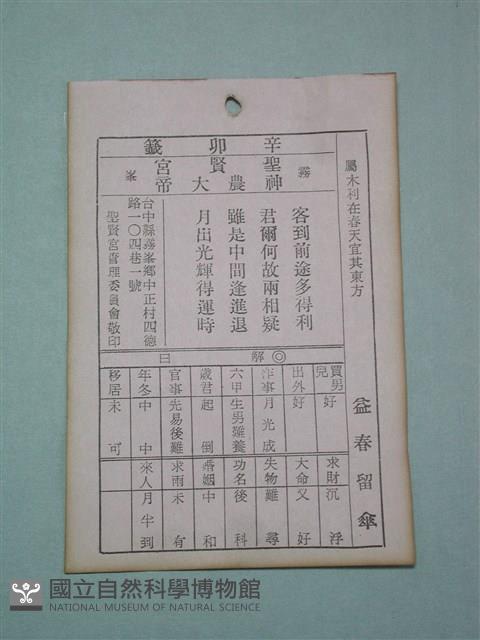 辛卯籤
聖賢宮
霧峯
神農大帝
屬木利在春天宜其東方
客到前途多得利
君爾何故兩相疑
雖是中間逢進退
月出光輝得運時
台中縣霧峯鄉中正村四德
路一〇四巷一號
聖賢宮管理委員會敬印
解曰
益春留傘
買男兒 好
出外 好
作事 月光成
六甲 生男難養
歲君 起倒
官事 先易後難
年冬 中中
移居 未可
求財 沉浮
大命 又好
失物 難尋
功名 後科
婚姻 中和
求雨 未有
來人 月半到
國立自然科學博物館
NATIONAL MUSEUM OF NATURAL SCIENCE